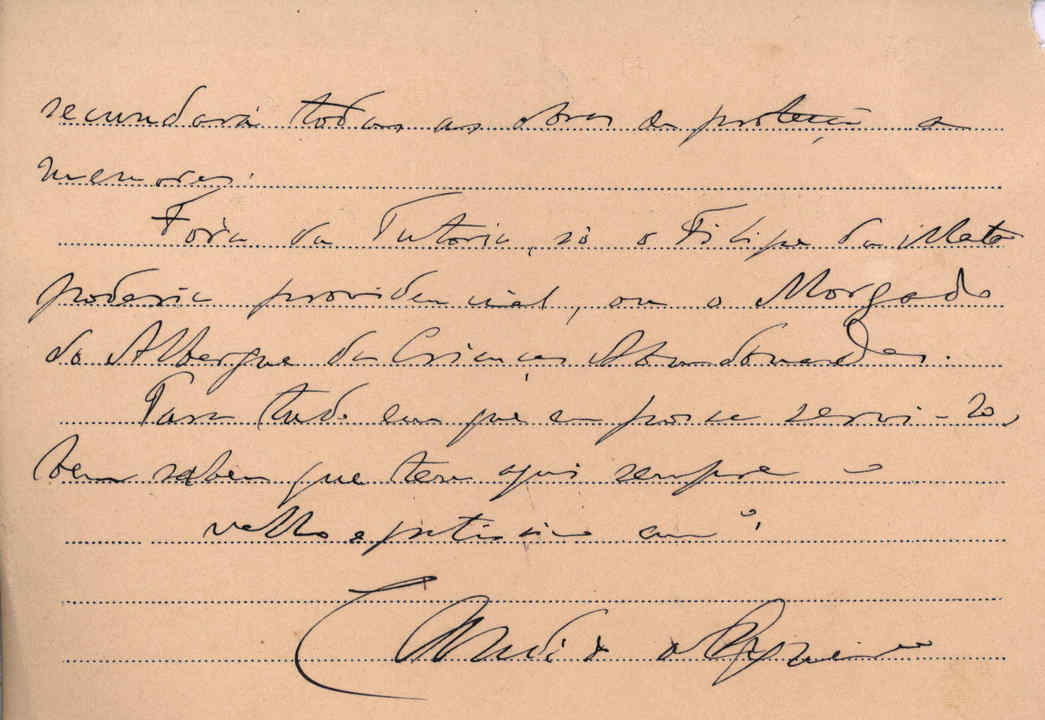 secundará todas as obras de proteção a
menores.
Fóra da Tutoria, só o Filipe da Mata
poderia providencial, ou o Morgado
do Albergue das Crianças Abandonadas.
Para tudo em que eu possa servi-lo,
bem sabem que tem aqui sempre o
velho e gratissimo amº.